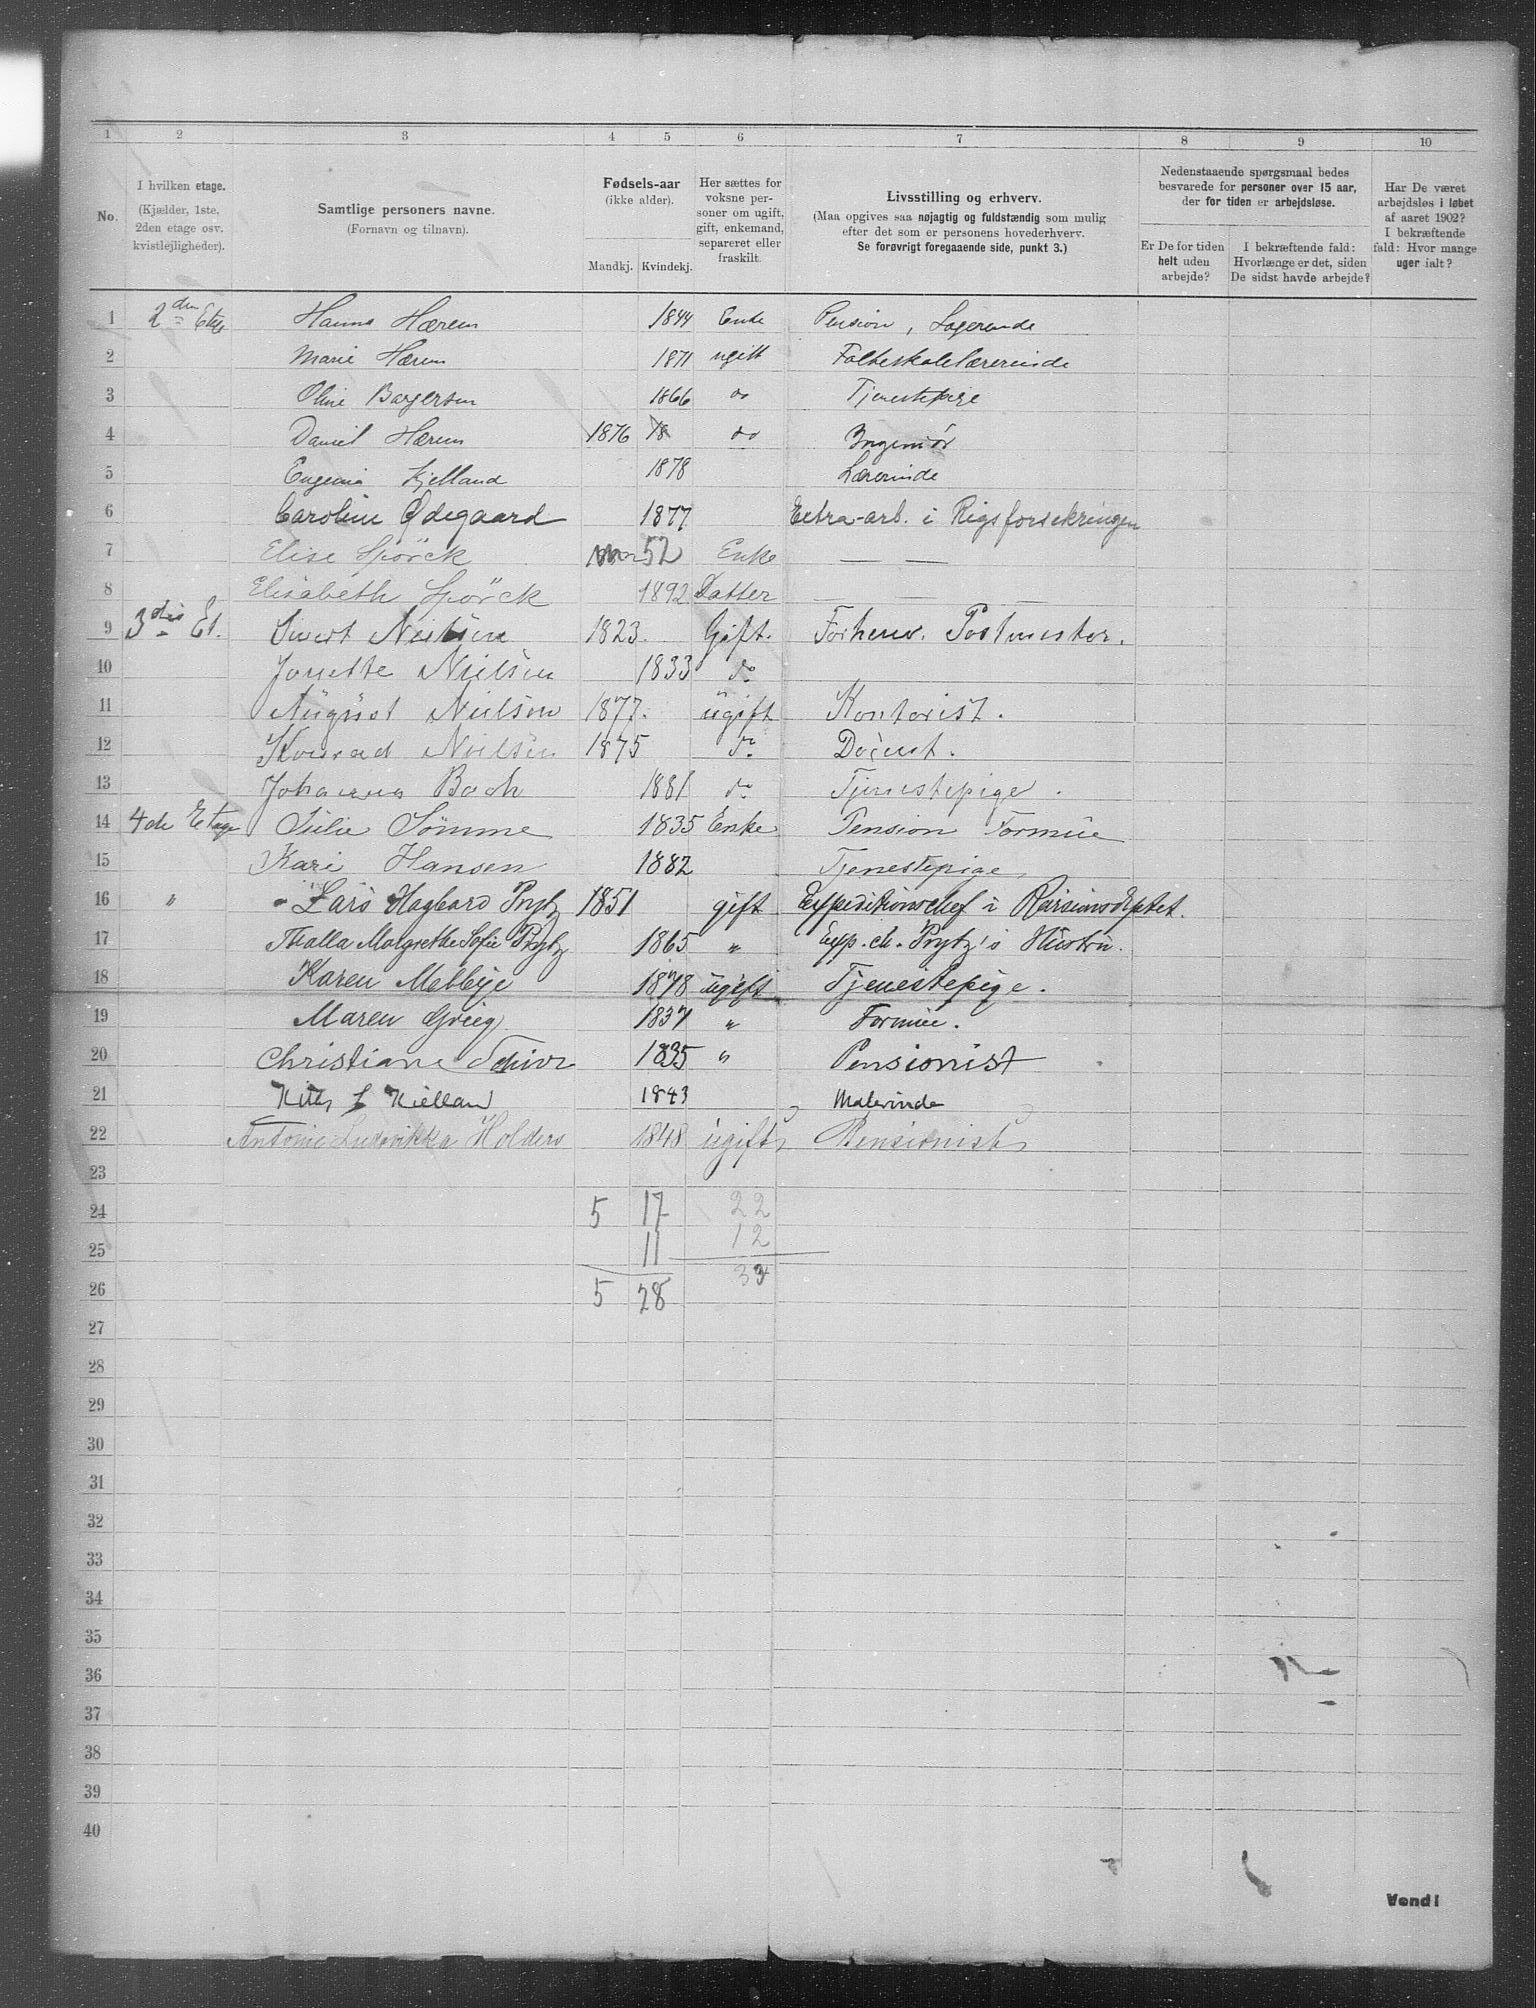 1 2 3 4 5 6 7 8 9 10
No.
I hvilken etage.
(Kjælder, 1ste, 2den etage osv. kvistlejligheder).
Samtlige personers navne.
(Fornavn og tilnavn).
Fødsels-aar
(ikke alder).
Mandkj. Kvindekj.
Her sættes for voksne personer om ugift, gift, enkemand, separeret eller fraskilt.
Livsstilling og erhverv.
(Maa opgives saa nøjagtig og fuldstændig som mulig
efter det som er personens hovederhverv.
Se forøvrigt foregaaende side, punkt 3.)
Nedenstaaende spørgsmaal bedes
besvarede for personer over 15 aar,
der for tiden er arbejdsløse.
Er De for tiden helt uden arbejde?
I bekræftende fald: Hvorlænge er det, siden De sidst havde arbejde?
Har De været arbejdsløs i løbet af aaret 1902? I bekræftende fald: Hvor mange uger ialt?
1 2den Etg Hanna Hærem 1844 Enke Pension, Logerende
2 Marie Hærem 1871 ugift Folkeskolelærerinde
3 Oline Borgersen 1866 do Tjenestepige
4 Daniel Hærem 1876 18 do Ingeniør
5 Eugenia Kjelland 1878 Lærerinde
6 Caroline Ødegaard 1877 Extra-arb. i Rigsforsikringen
7 Elise Spörck 52 Enke — —
8 Elisabeth Spörck 1892 Datter — — —
9 3die Et. Sivert Nielsen 1823. Gift. Forhenv. Postmester.
10 Jonette Nielsen 1833 do
11 August Nielsen 1877. ugift Kontorist.
12 Konrad Nielsen 1875 do Docent.
13 Johanna Bach 1881 do Tjenestepige.
14 4de Etage Julie Sömme 1835 Enke Pension Formue
15 Kari Hansen 1882 Tjenestepige,
16 " Lars Hagbard Prytz 1851 gift Expeditionschef i Revisionsdeptet.
17 Thalla Margrethe Sofie Prytz 1865 " Exp. ch. Prytz's Hustru.
18 Karen Mellbye 1878 ugift Tjenestepige.
19 Maren Grieg 1837 " Formue.
20 Christiane Schive 1835 " Pensionist
21 Kitty L Kielland 1843 Malerinde
22 Antonie Ludovikka Holders 1848 ugift, Pensionist
23
24 5 17 22
25 11 12
26 5 28
27
28
29
30
31
32
33
34
35
36
37
38
39
40
Vend!